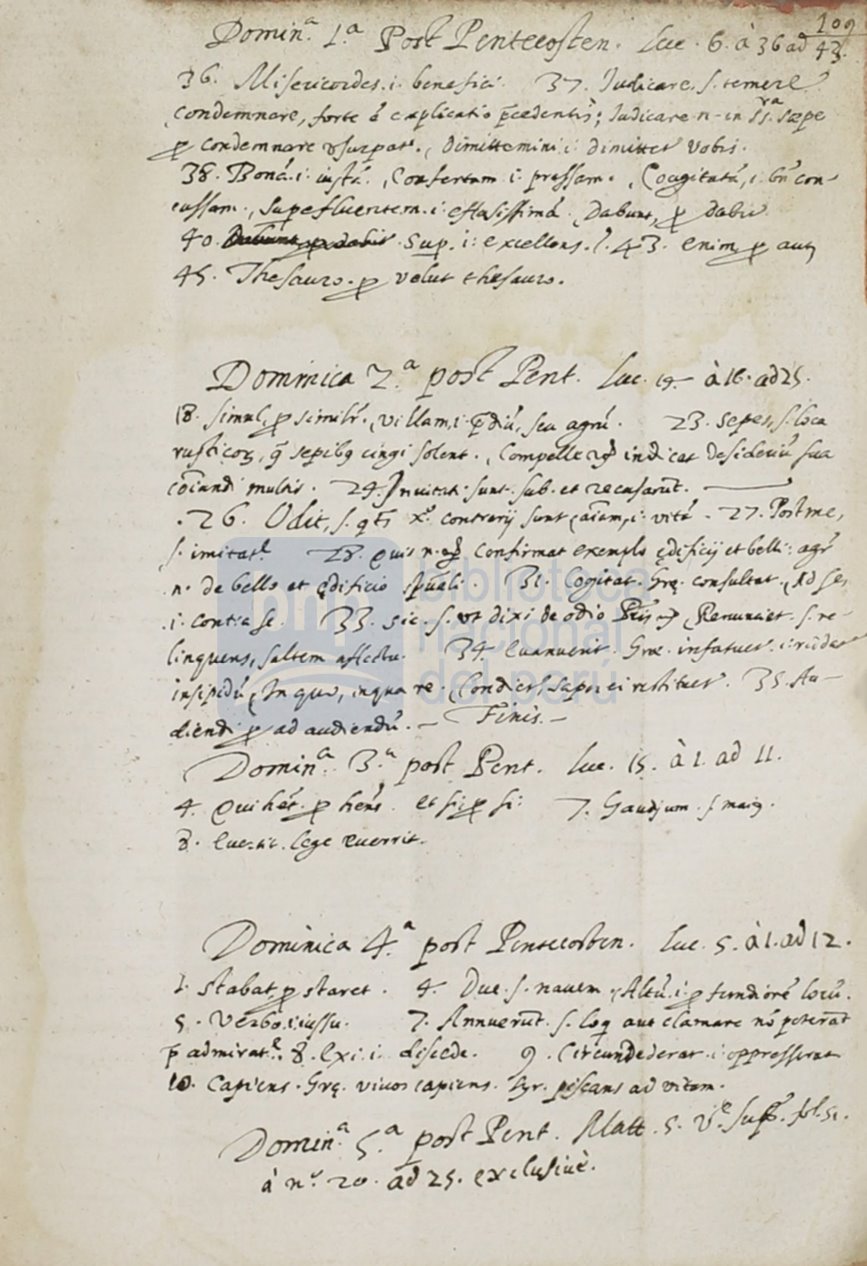 109
Domin.ª 1.ª Post Pentecosten. Luc. 6. à 36 ad 43.
36. Misericordes .i. benefici. 37. Iudicare. s. temerè.
Condemnare, forte ē explicatio p̄cedentis; Iudicare n. in SS.ra sæpe
p condemnare vsurpat.r, Dimittemini .i. dimittet vobis.
38. Bonā .i. iustā. Confertam .i. pressam. Coagitatā, .i. bn̄ con-
cussam. Supefluentem .i. effusissimā. Dabunt, p dabit
40. Dabunt, p dabit Sup. .i. excellens. 43. enim p aut
45. Thesauro. p velut thesauro.
Dominica 2.ª post Pent. Luc. 14. à 16. ad 25.
18. simul, p similr̄. villam, .i. p̄diū, seu agrū. 23. sepes, s. loca
rusticoꝝ, q̄ sepibꝰ cingi solent. Compelle indicat desideriū sua
cōīandi multis. 24. Inuitati sunt. sub. et recusarūt.
26. Odit, s. qt̄s xº contrarij sunt, aīam, .i. vitā. 27. Post me,
s. imitat.e 28. Quis n. confirmat exemplo ędificij et belli: agr̄
n. de bello et ędificio spūali. 31. Cogitat. Gre. consultat. Ad se,
.i. contra se. 33. sic. s. vt dixi de odio Renunciet. s. re-
linquens, saltem affectu. 34. Euanuerit. Grę. infatuet. .i. reddat
insipidū, In quo, in qua re. Condiet, sapor ei restituet. 35. Au-
diendi p ad audiendū. – Finis. –
Domin.ª 3.ª post Pent. Luc. 15. à 1. ad 11.
4. Qui hēt. p hēns. et si, p si: 7. Gaudium. s. maiꝰ.
8. Euertit. lege euerrit.
Dominica 4.ª post Pentecosten. Luc. 5. à 1. ad 12.
1. Stabat, p staret. 4. Duc. s. nauem. Altū. .i. p fundiorē locū.
5. Verbo .i. iussu. 7. Annuerūt. s. loq aut clamare nō poterāt
p admirat.e 8. Exi .i. discede. 9. Circundederat .i. oppresserat
10. Capiens. Grę. viuos capiens. Syr. piscans ad vitam.
Domin.ª 5.ª post Pent. Matt. 5. V.e sup. fol. 51.
à n.º 20. ad 25. exclusiuè.
biblioteca
nacional
del perú